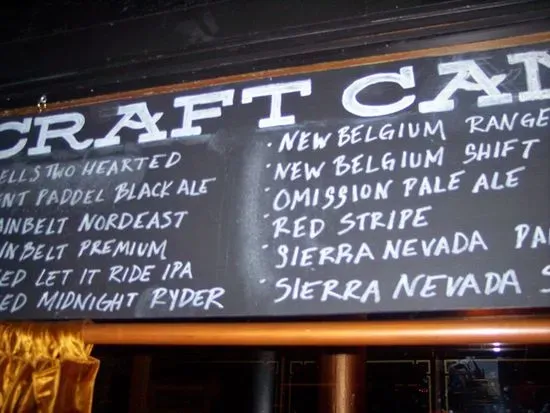 CRAFT CAN
ELLS TWO HEARTED
ENT PADDEL BLACK ALE
AINBELT NORDEAST
AINBELT PREMIUM
EED LET IT RIDE IPA
EED MIDNIGHT RYDER
· NEW BELGIUM RANGE
· NEW BELGIUM SHIFT
· OMISSION PALE ALE
· RED STRIPE
· SIERRA NEVADA PA
· SIERRA NEVADA S